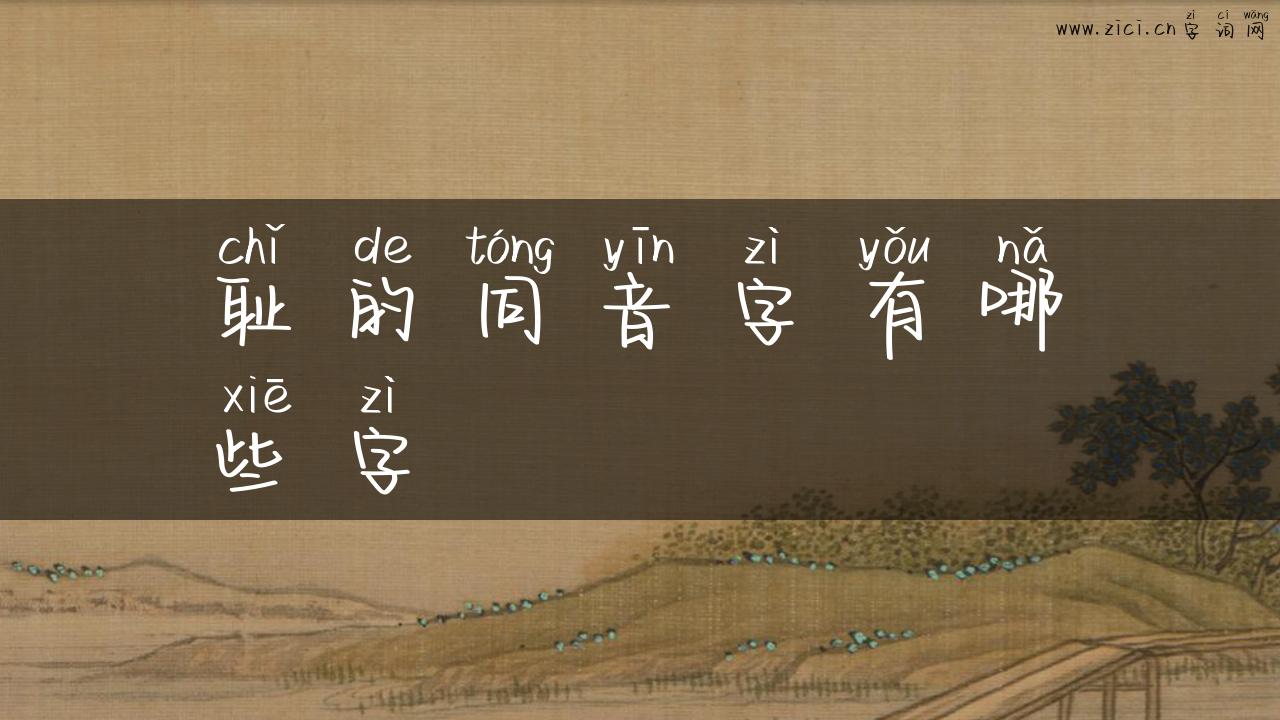 zì cí wǎng
www.zici.cn 字 词 网
chǐ de tóng yīn zì yǒu nǎ
耻 的 同 音 字 有 哪
xiē zì
些 字